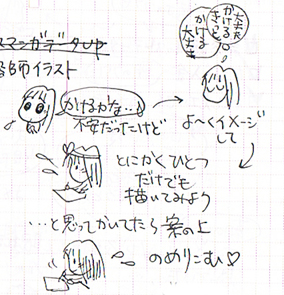 スマンガデータUP
師イラスト
大丈夫
かける
きっと
かける
大丈夫
かけるかな…
不安だったけど
よ〜くイメージ
して
とにかくひとつ
だけでも
描いてみよう
…と思ってかいてたら案の上
のめりこむ♡